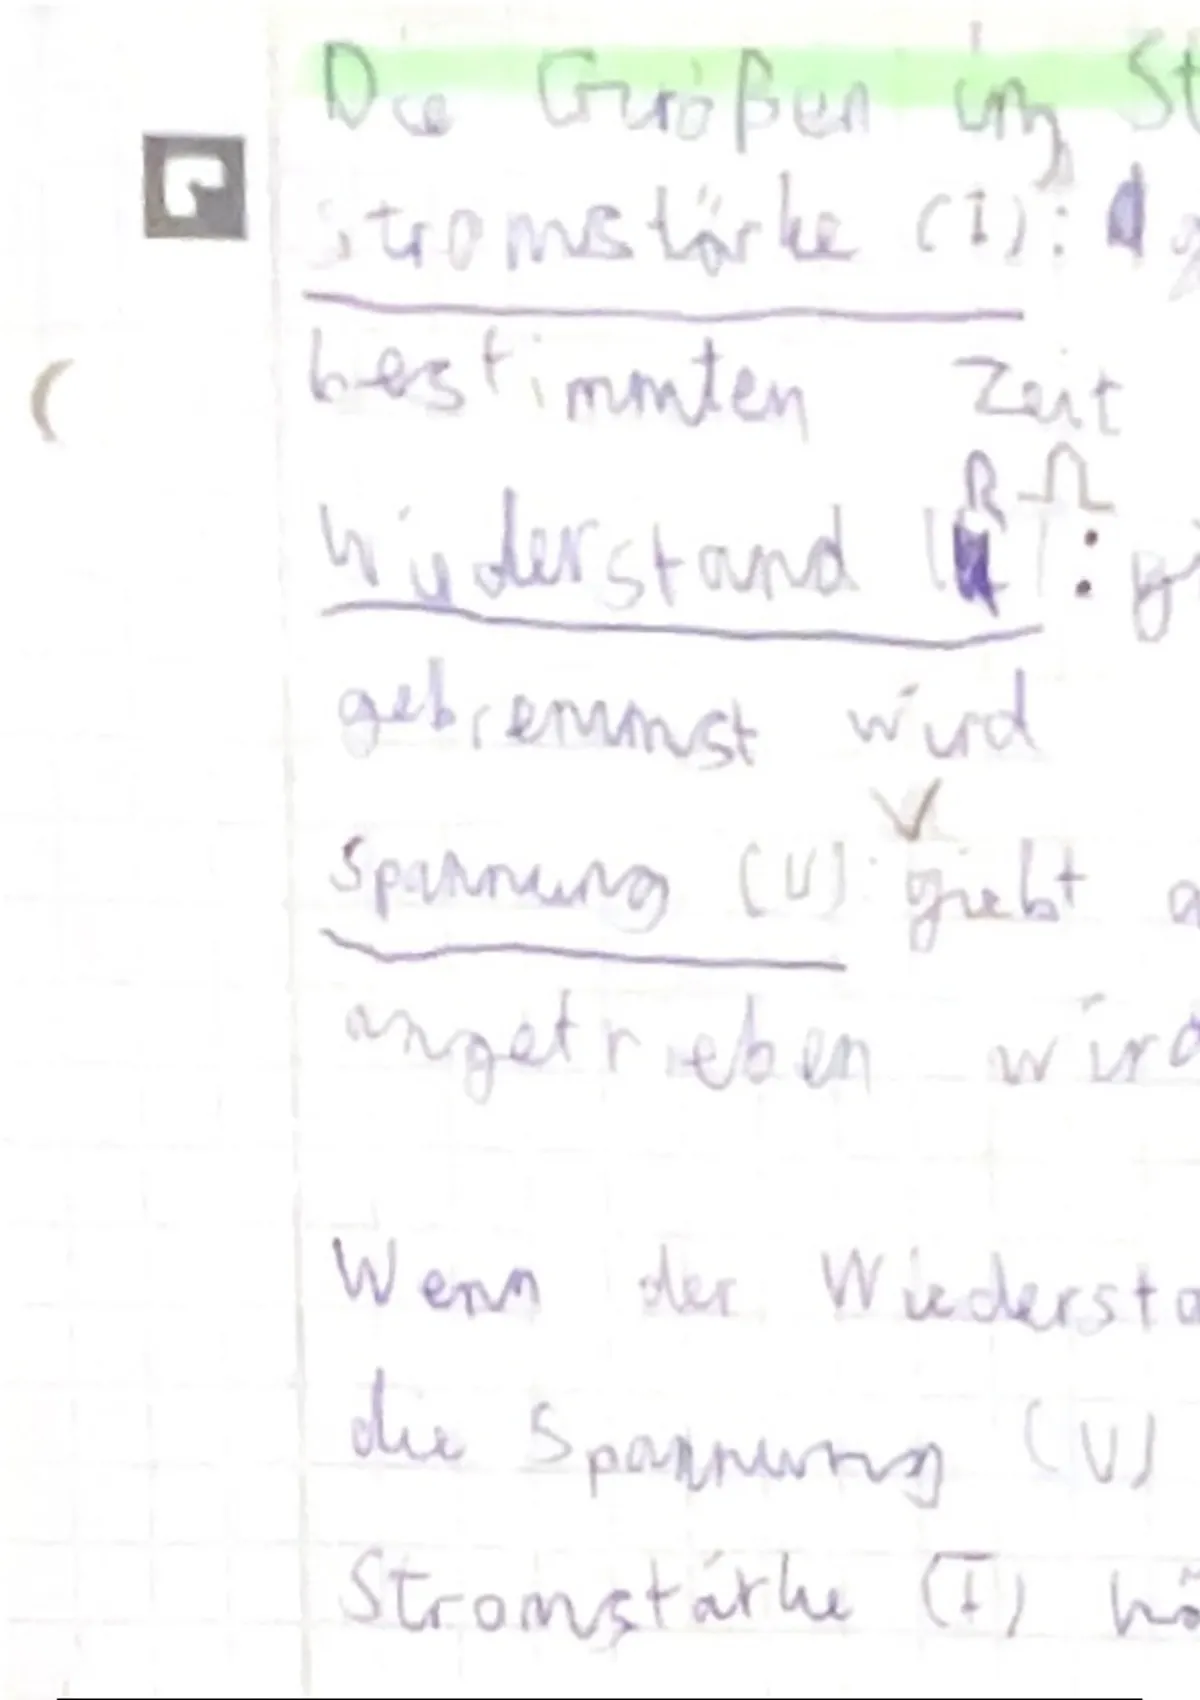 Die Größen im St
Stromstärke (I):
bestimmten Zeit
R Ω
Wiederstand ( ):
gebremmst wird
V
Spannung (U): giebt a
angetrieben wird
Wenn der Wiedersta
die Spannung (U)
Stromstärke (I) hö